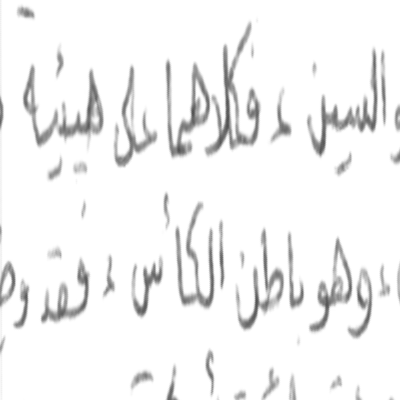 والسين ، فكلاهما على هيئة
، وهو باطن الكأس ، فقد وض